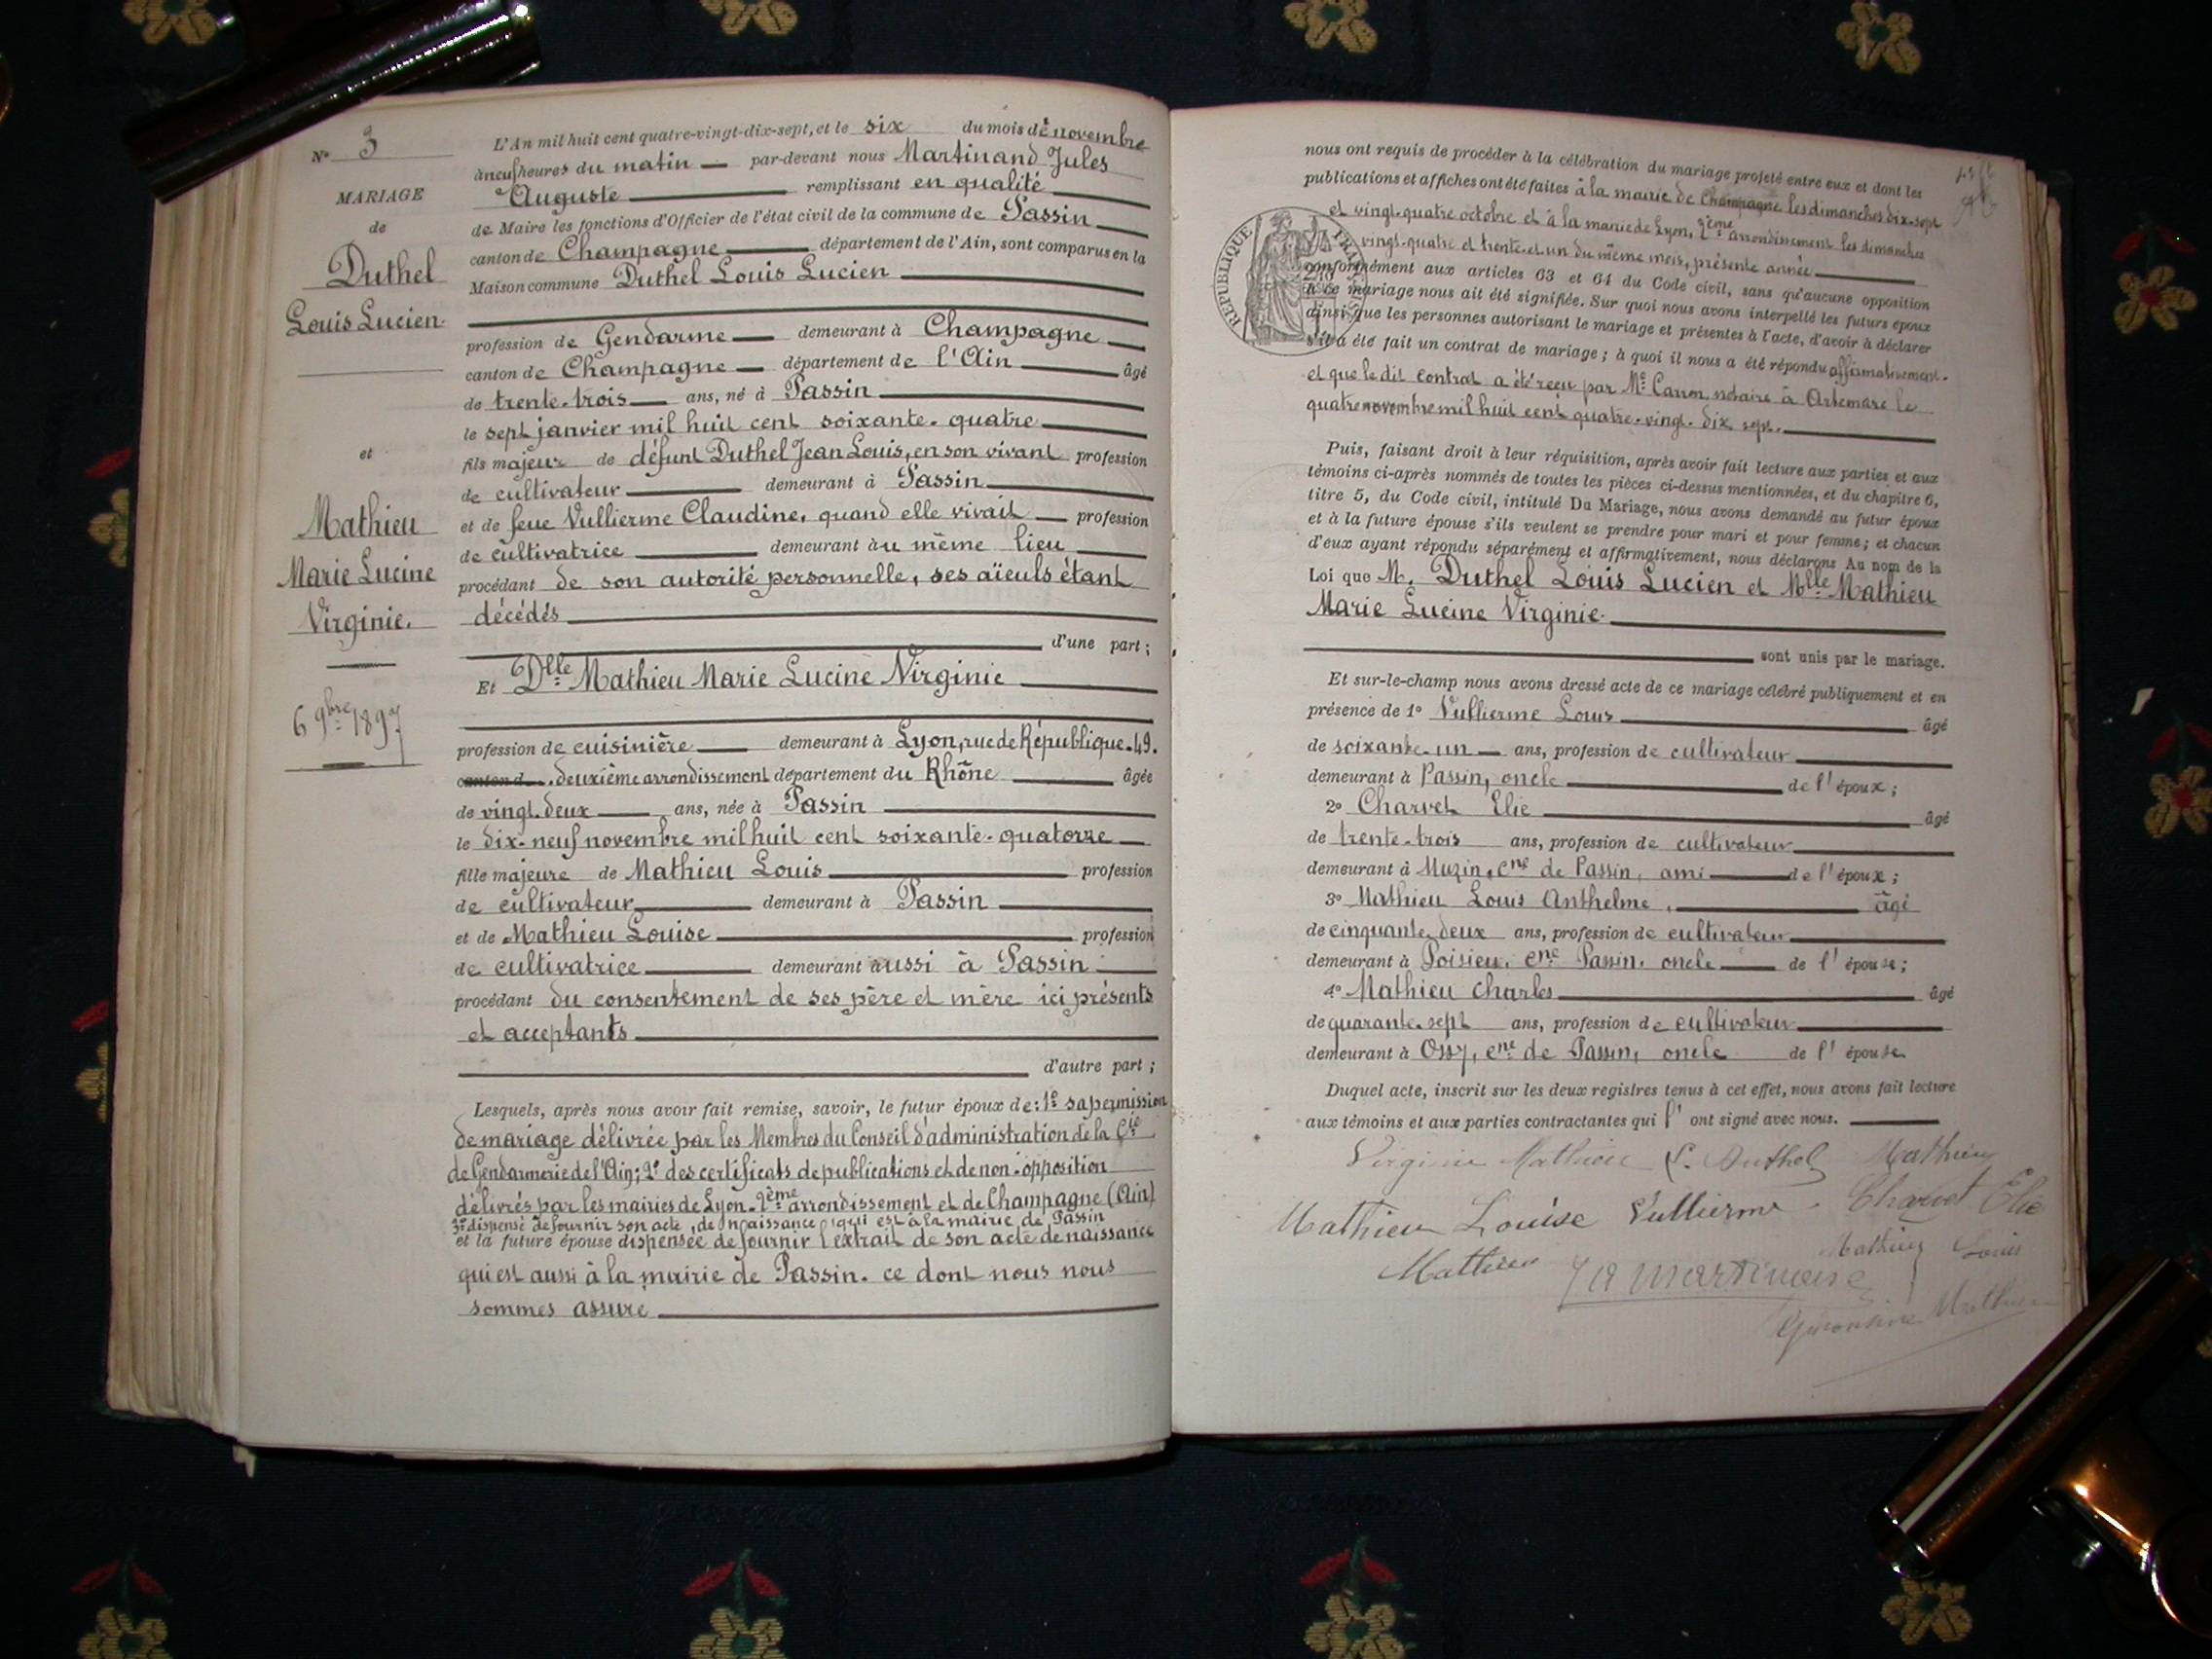 N° 3
MARIAGE
de
Duthel
Louis Lucien
et
Mathieu
Marie Lucine
Virginie.
6 9bre 1897
L'An mil huit cent quatre-vingt-dix-sept, et le six du mois de novembre
à neuf heures du matin par-devant nous Martinand Jules
Auguste remplissant en qualité
de Maire les fonctions d'Officier de l'état civil de la commune de Passin
canton de Champagne département de l'Ain, sont comparus en la
Maison commune Duthel Louis Lucien
profession de Gendarme demeurant à Champagne
canton de Champagne département de l'Ain âgé
de trente-trois ans, né à Passin
le sept janvier mil huit cent soixante-quatre
fils majeur de défunt Duthel Jean Louis, en son vivant profession
de cultivateur demeurant à Passin
et de feue Vullierme Claudine, quand elle vivait profession
de cultivatrice demeurant au même lieu
procédant de son autorité personnelle, ses aïeuls étant
décédés
d'une part ;
Et Dlle Mathieu Marie Lucine Virginie
profession de cuisinière demeurant à Lyon, rue de République. 49.
canton d deuxième arrondissement département du Rhône âgée
de vingt-deux ans, née à Passin
le dix-neuf novembre mil huit cent soixante-quatorze
fille majeure de Mathieu Louis profession
de cultivateur demeurant à Passin
et de Mathieu Louise profession
de cultivatrice demeurant aussi à Passin
procédant du consentement de ses père et mère ici présents
et acceptants
d'autre part ;
Lesquels, après nous avoir fait remise, savoir, le futur époux de : 1° sa permission
de mariage délivrée par les Membres du Conseil d'administration de la Cie
de Gendarmerie de l'Ain; 2° des certificats de publications et de non-opposition
délivrés par les mairies de Lyon 2ème arrondissement et de Champagne (Ain)
3° dispensé de fournir son acte de naissance qui est à la mairie de Passin
et la future épouse dispensée de fournir l'extrait de son acte de naissance
qui est aussi à la mairie de Passin. ce dont nous nous
sommes assuré
nous ont requis de procéder à la célébration du mariage projeté entre eux et dont les
publications et affiches ont été faites à la mairie de Champagne les dimanches dix-sept
et vingt-quatre octobre et à la mairie de Lyon, 2ème arrondissement les dimanches
vingt-quatre et trente-et-un du même mois, présente année
RÉPUBLIQUE FRANÇAISE
conformément aux articles 63 et 64 du Code civil, sans qu'aucune opposition
à ce mariage nous ait été signifiée. Sur quoi nous avons interpellé les futurs époux
ainsi que les personnes autorisant le mariage et présentes à l'acte, d'avoir à déclarer
s'il a été fait un contrat de mariage ; à quoi il nous a été répondu affirmativement.
et que le dit contrat a été reçu par Me Carron, notaire à Artemare le
quatre novembre mil huit cent quatre-vingt-dix sept.
Puis, faisant droit à leur réquisition, après avoir fait lecture aux parties et aux
témoins ci-après nommés de toutes les pièces ci-dessus mentionnées, et du chapitre 6,
titre 5, du Code civil, intitulé Du Mariage, nous avons demandé au futur époux
et à la future épouse s'ils veulent se prendre pour mari et pour femme ; et chacun
d'eux ayant répondu séparément et affirmativement, nous déclarons Au nom de la
Loi que M. Duthel Louis Lucien et Mlle Mathieu
Marie Lucine Virginie.
sont unis par le mariage.
Et sur-le-champ nous avons dressé acte de ce mariage célébré publiquement et en
présence de 1° Vullierme Louis âgé
de soixante-un ans, profession de cultivateur
demeurant à Passin, oncle de l'époux ;
2° Charvet Elie âgé
de trente-trois ans, profession de cultivateur
demeurant à Muzin, cne de Passin, ami de l'époux ;
3° Mathieu Louis Anthelme, âgé
de cinquante deux ans, profession de cultivateur
demeurant à Poisieu, cne Passin, oncle de l'épouse ;
4° Mathieu Charles âgé
de quarante-sept ans, profession de cultivateur
demeurant à Ossy, cne de Passin, oncle de l'épouse
Duquel acte, inscrit sur les deux registres tenus à cet effet, nous avons fait lecture
aux témoins et aux parties contractantes qui l'ont signé avec nous.
Virginie Mathieu L. Duthel Mathieu
Mathieu Louise Vullierme Charvet Elie
Mathieu Mathieu Louis
Mathieu